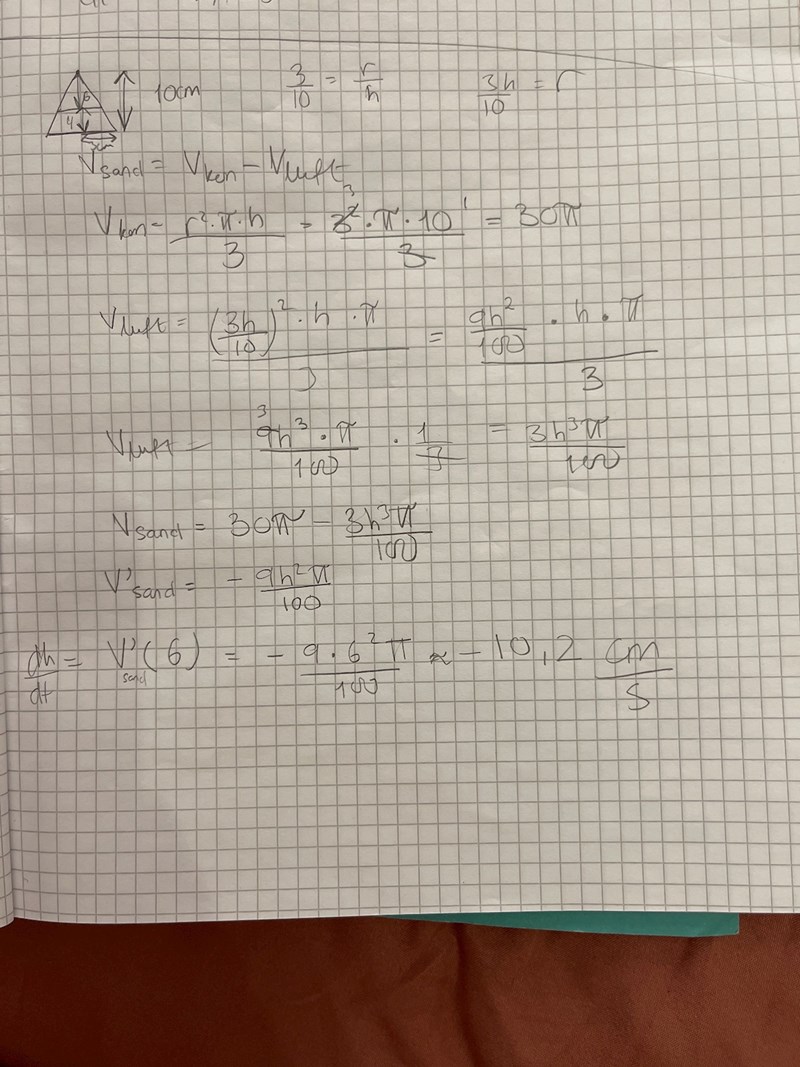 10cm 3/10 = r/h 3h/10 = r
6
4
V_sand = V_kon - V_luft
V_kon = r²·π·h/3 = 3²·π·10/3 = 30π
V_luft = (3h/10)²·h·π/3 = 9h²/100·h·π/3
V_luft = 9h³·π/100 · 1/3 = 3h³π/100
V_sand = 30π - 3h³π/100
V'_sand = - 9h²π/100
dh/dt = V'_sand(6) = - 9·6²π/100 ≈ -10,2 cm/s